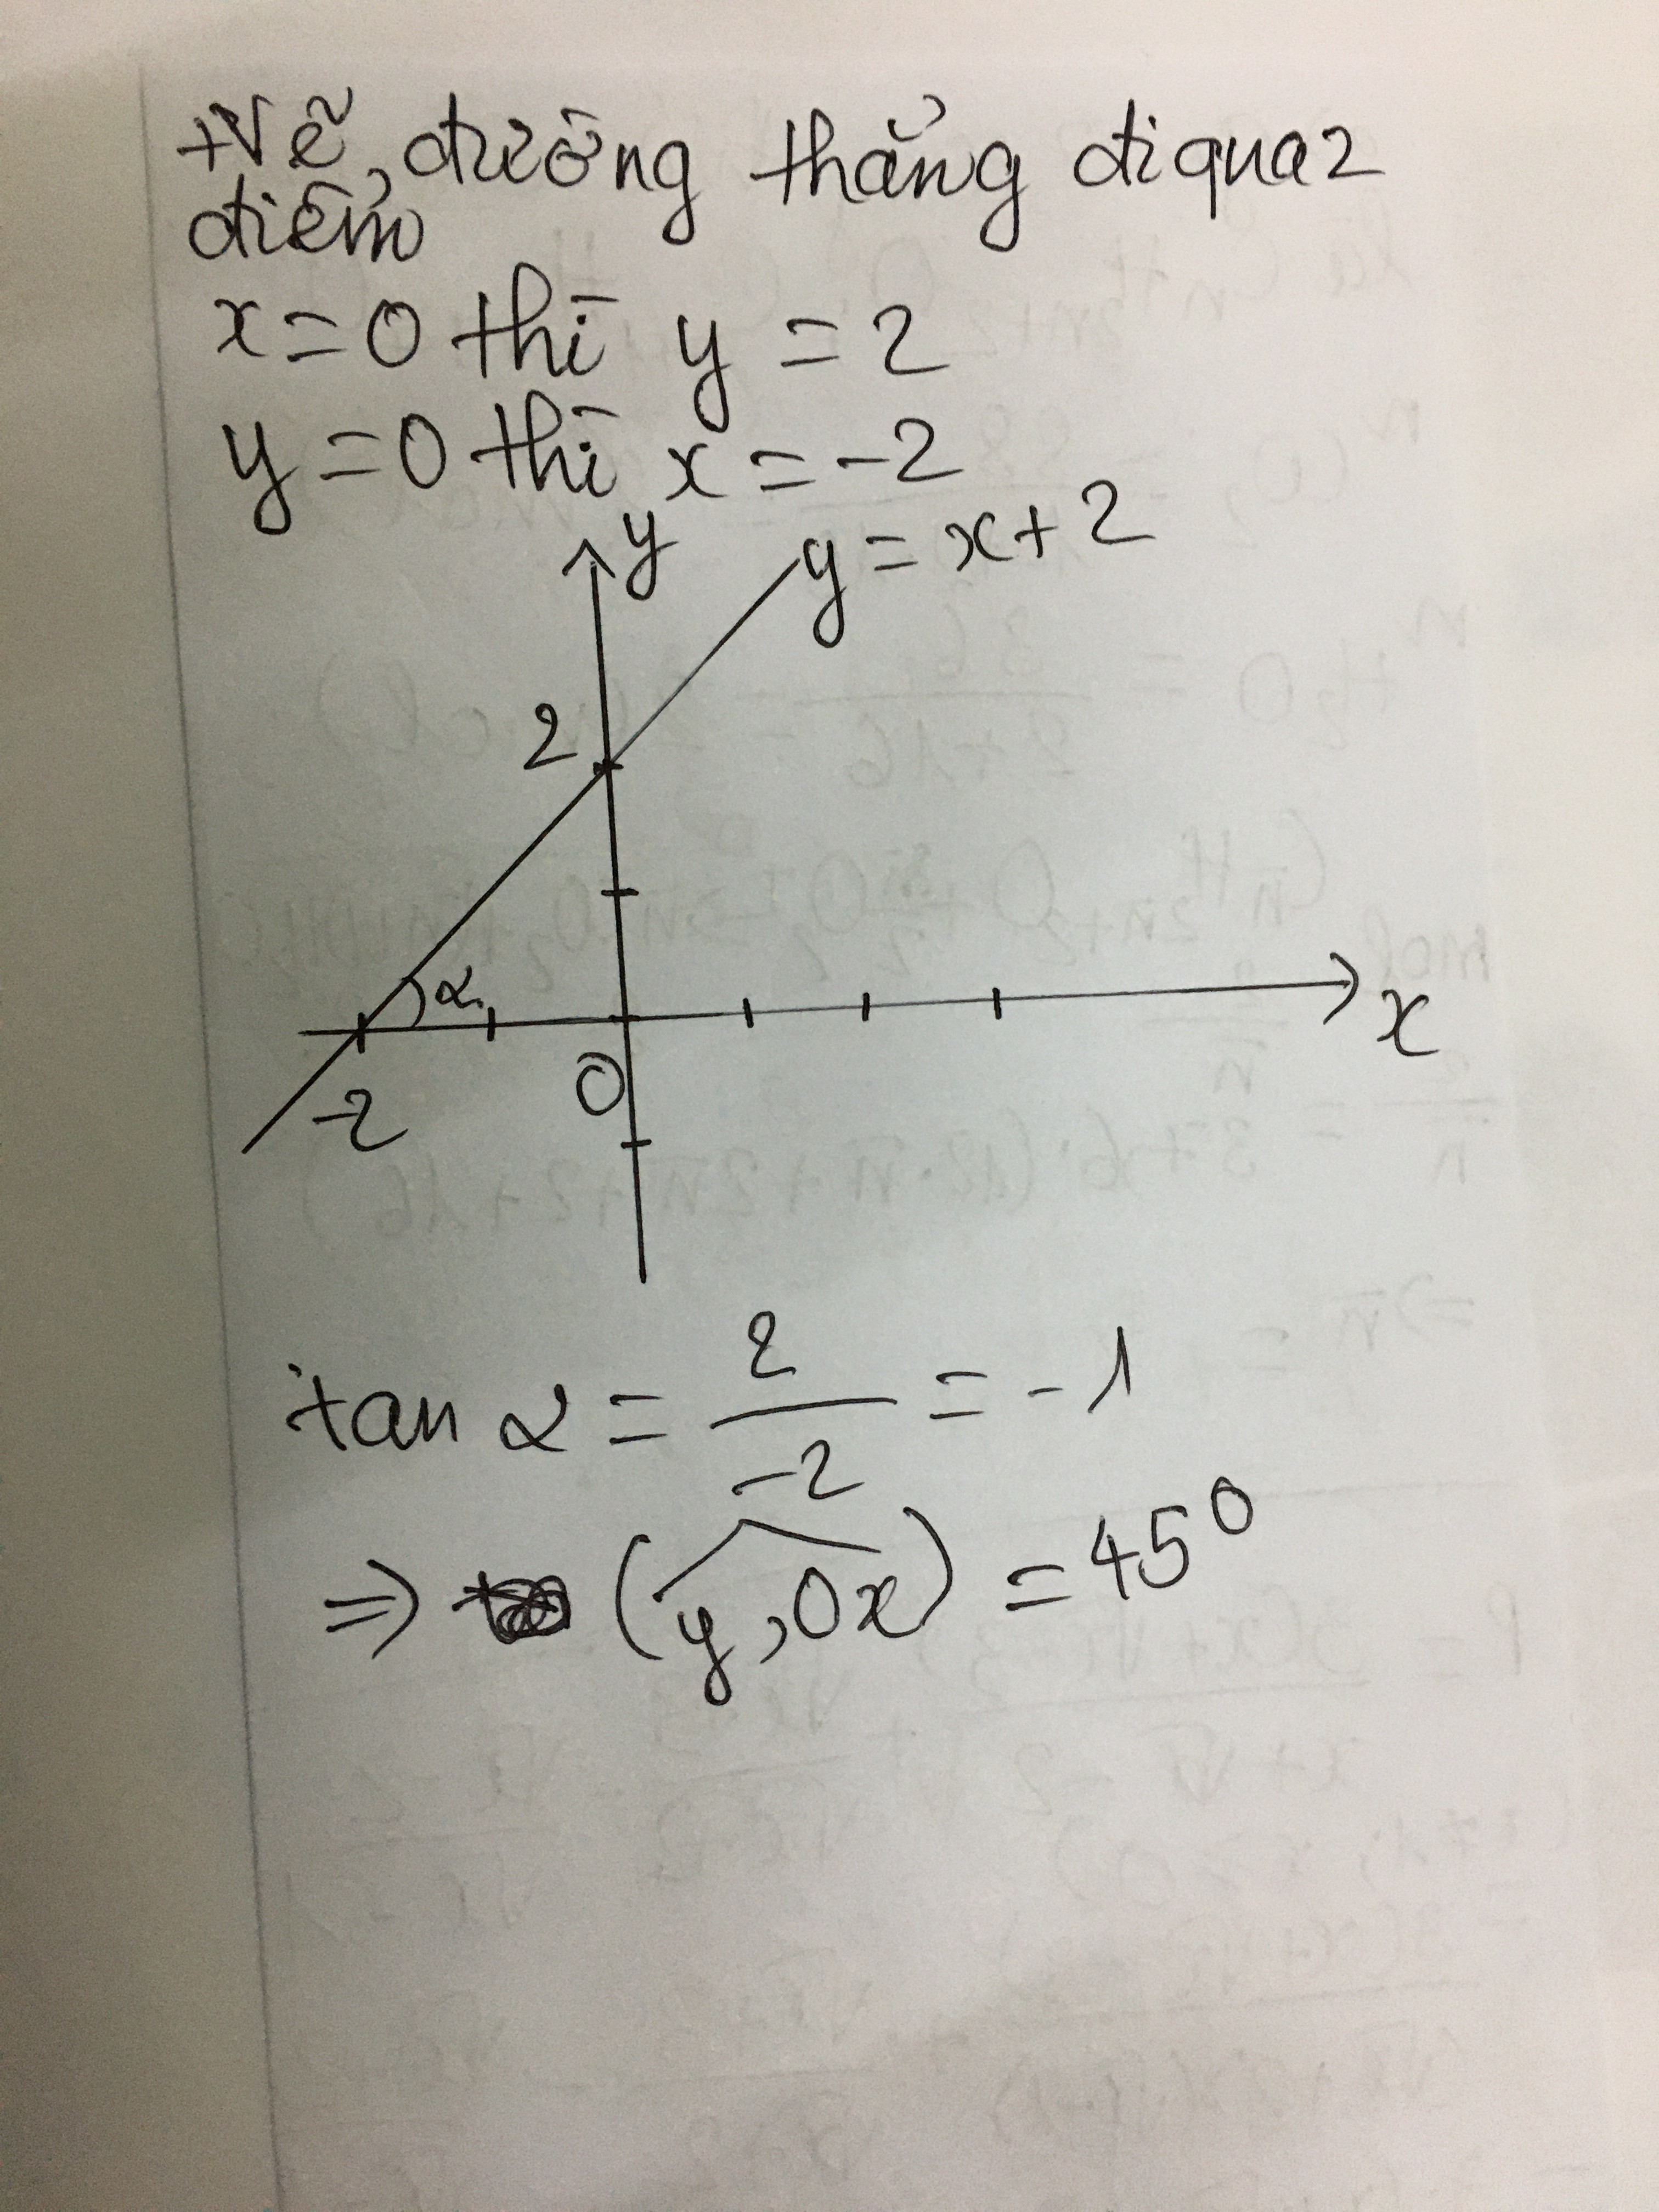 + Vẽ đường thẳng đi qua 2
điểm
x = 0 thì y = 2
y = 0 thì x = -2
y
y = x + 2
2
α
x
-2
0
tan α = 2/-2 = -1
⇒ (y, Ox) = 45⁰